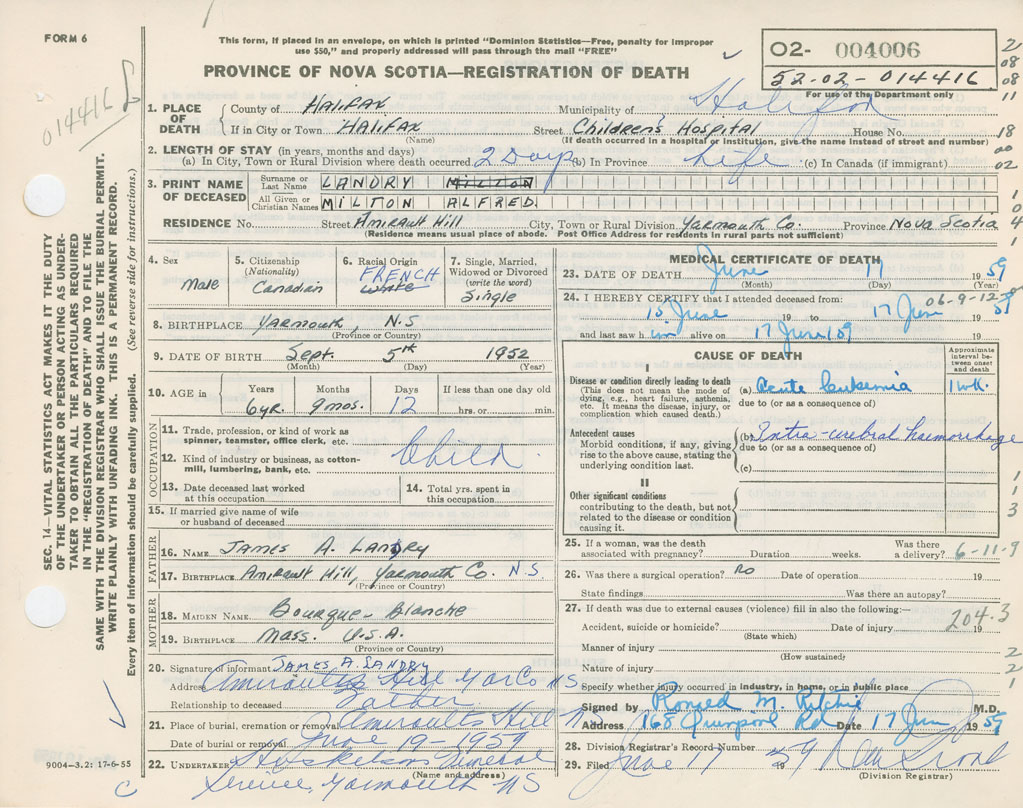 FORM 6
This form, if placed in an envelope, on which is printed "Dominion Statistics—Free, penalty for improper
use $50," and properly addressed will pass through the mail "FREE"
PROVINCE OF NOVA SCOTIA—REGISTRATION OF DEATH
02- 004006
52-02-014416
For use of the Department only
2
08
08
11
18
00
02
1
0
4
1
014416
SEC. 14—VITAL STATISTICS ACT MAKES IT THE DUTY
OF THE UNDERTAKER OR PERSON ACTING AS UNDER-
TAKER TO OBTAIN ALL THE PARTICULARS REQUIRED
IN THE "REGISTRATION OF DEATH" AND TO FILE THE
SAME WITH THE DIVISION REGISTRAR WHO SHALL ISSUE THE BURIAL PERMIT.
WRITE PLAINLY WITH UNFADING INK. THIS IS A PERMANENT RECORD.
Every item of information should be carefully supplied. (See reverse side for instructions.)
1. PLACE OF DEATH County of Halifax Municipality of Halifax
If in City or Town Halifax Street Children's Hospital House No.
(Name) (If death occurred in a hospital or institution, give the name instead of street and number)
2. LENGTH OF STAY (in years, months and days)
(a) In City, Town or Rural Division where death occurred 2 Days (b) In Province Life (c) In Canada (if immigrant)
3. PRINT NAME OF DECEASED Surname or Last Name LANDRY MILTON
All Given or Christian Names MILTON ALFRED.
RESIDENCE No. Street Amirault Hill City, Town or Rural Division Yarmouth Co. Province Nova Scotia
(Residence means usual place of abode. Post Office Address for residents in rural parts not sufficient)
4. Sex Male
5. Citizenship (Nationality) Canadian
6. Racial Origin FRENCH White
7. Single, Married, Widowed or Divorced (write the word) Single
8. BIRTHPLACE Yarmouth, N.S
(Province or Country)
9. DATE OF BIRTH Sept. 5th 1952
(Month) (Day) (Year)
10. AGE in Years Months Days If less than one day old
6yr. 9mos. 12 hrs. or min.
OCCUPATION
11. Trade, profession, or kind of work as
spinner, teamster, office clerk, etc.
Child
12. Kind of industry or business, as cotton-
mill, lumbering, bank, etc.
13. Date deceased last worked
at this occupation
14. Total yrs. spent in
this occupation
15. If married give name of wife
or husband of deceased
FATHER
16. NAME James A. Landry
17. BIRTHPLACE Amirault Hill, Yarmouth Co. N.S.
(Province or Country)
MOTHER
18. MAIDEN NAME Bourque - Blanche
19. BIRTHPLACE Mass. U.S.A.
(Province or Country)
20. Signature of informant JAMES A. LANDRY
Address Amiraults Hill Yar Co NS
Relationship to deceased Father
21. Place of burial, cremation or removal Amiraults Hill N
Date of burial or removal June 19-1959
22. UNDERTAKER Funeral
(Name and address)
Service Yarmouth NS
9004-3.2: 17-6-55
C
MEDICAL CERTIFICATE OF DEATH
23. DATE OF DEATH June 17 1959
(Month) (Day) (Year)
06-9-12
24. I HEREBY CERTIFY that I attended deceased from:
15 June 19 to 17 June 1959
and last saw him alive on 17 June 159
CAUSE OF DEATH
Approximate interval between onset and death
I
Disease or condition directly leading to death
(This does not mean the mode of
dying, e.g., heart failure, asthenia,
etc. It means the disease, injury, or
complication which caused death.)
(a) Acute leukemia 1 wk.
due to (or as a consequence of)
Antecedent causes
Morbid conditions, if any, giving
rise to the above cause, stating the
underlying condition last.
(b) Intra-cerebral haemorrhage
due to (or as a consequence of)
(c)
II
Other significant conditions
contributing to the death, but not
related to the disease or condition
causing it.
1
1
3
25. If a woman, was the death
associated with pregnancy? Duration weeks. Was there a delivery?
6-11-9
26. Was there a surgical operation? No Date of operation 19
State findings Was there an autopsy?
27. If death was due to external causes (violence) fill in also the following:—
204.3
Accident, suicide or homicide? Date of injury 19
(State which)
Manner of injury
(How sustained)
Nature of injury
Specify whether injury occurred in industry, in home, or in public place
2
2
1
Signed by Ronald M. Ritchie M.D.
Address 168 Quinpool Rd Date 17 June 1959
28. Division Registrar's Record Number
29. Filed June 17 1959
(Division Registrar)